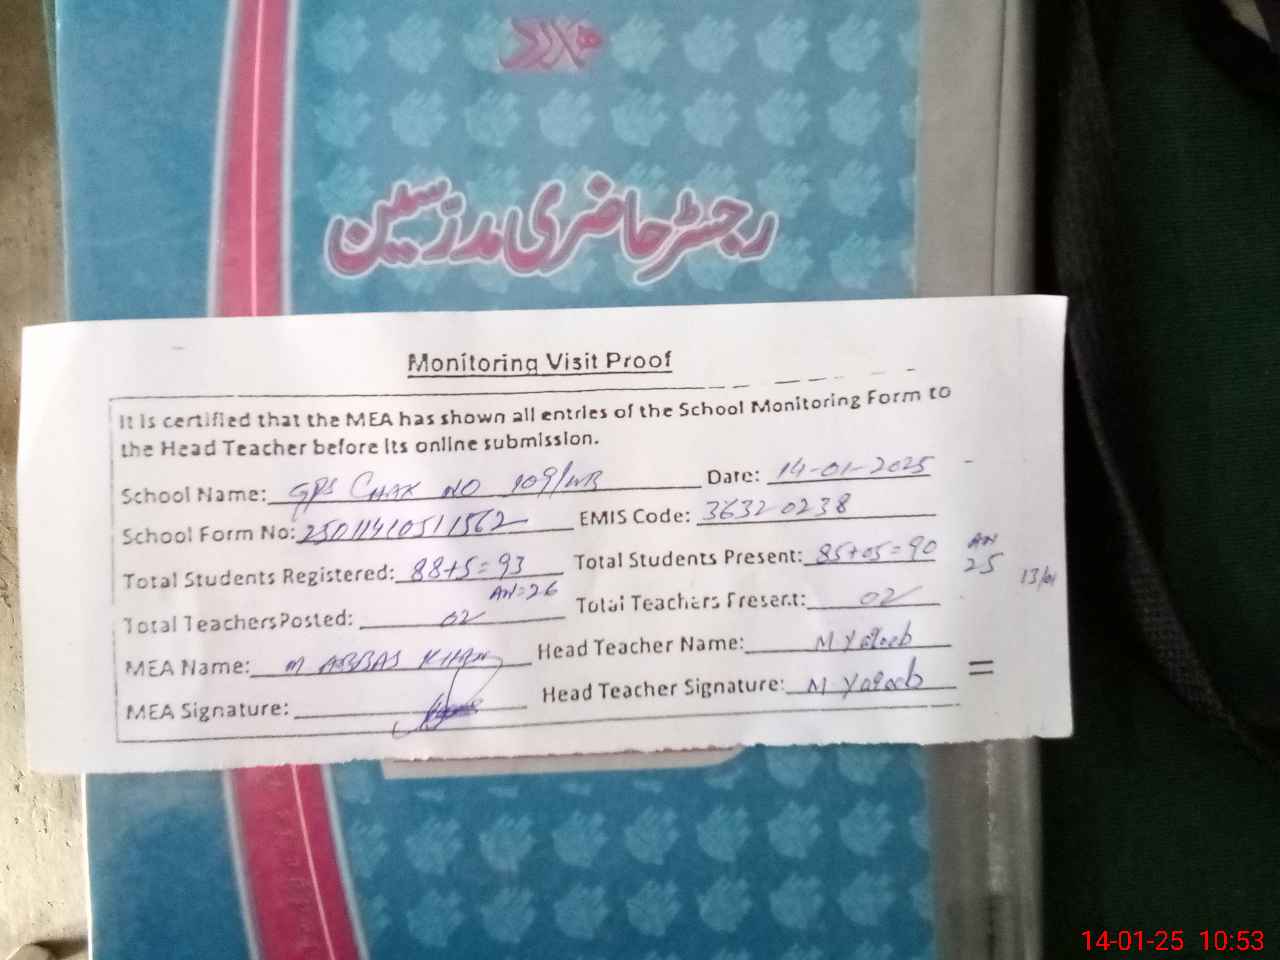 رجسٹر حاضری مدرسین
Monitoring Visit Proof
It is certified that the MEA has shown all entries of the School Monitoring Form to
the Head Teacher before its online submission.
School Name: GPS CHAK NO 109/WB Date: 14-01-2025
School Form No: 25011410511562 EMIS Code: 36320238
Total Students Registered: 88+5=93 Total Students Present: 85+05=90
AN=26
AN
25
13/01
Total Teachers Posted: 02 Total Teachers Present: 02
MEA Name: M ABBAS KHAN Head Teacher Name: M Yaqoob
MEA Signature: Head Teacher Signature: M Yaqoob
14-01-25 10:53